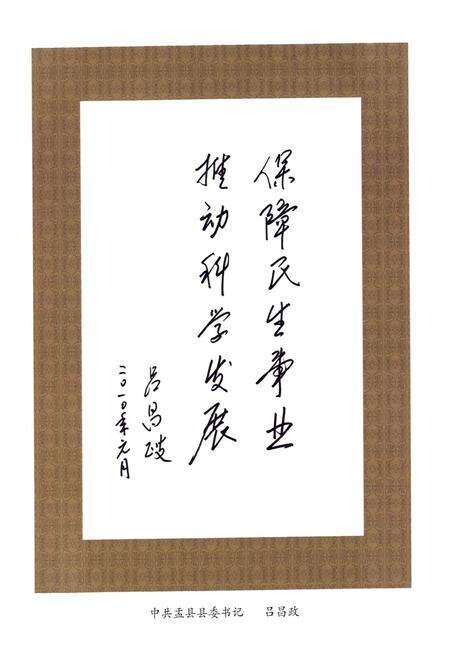 保障民生事业
推动科学发展
吕昌政
二〇一〇年元月
中共盂县县委书记 吕昌政